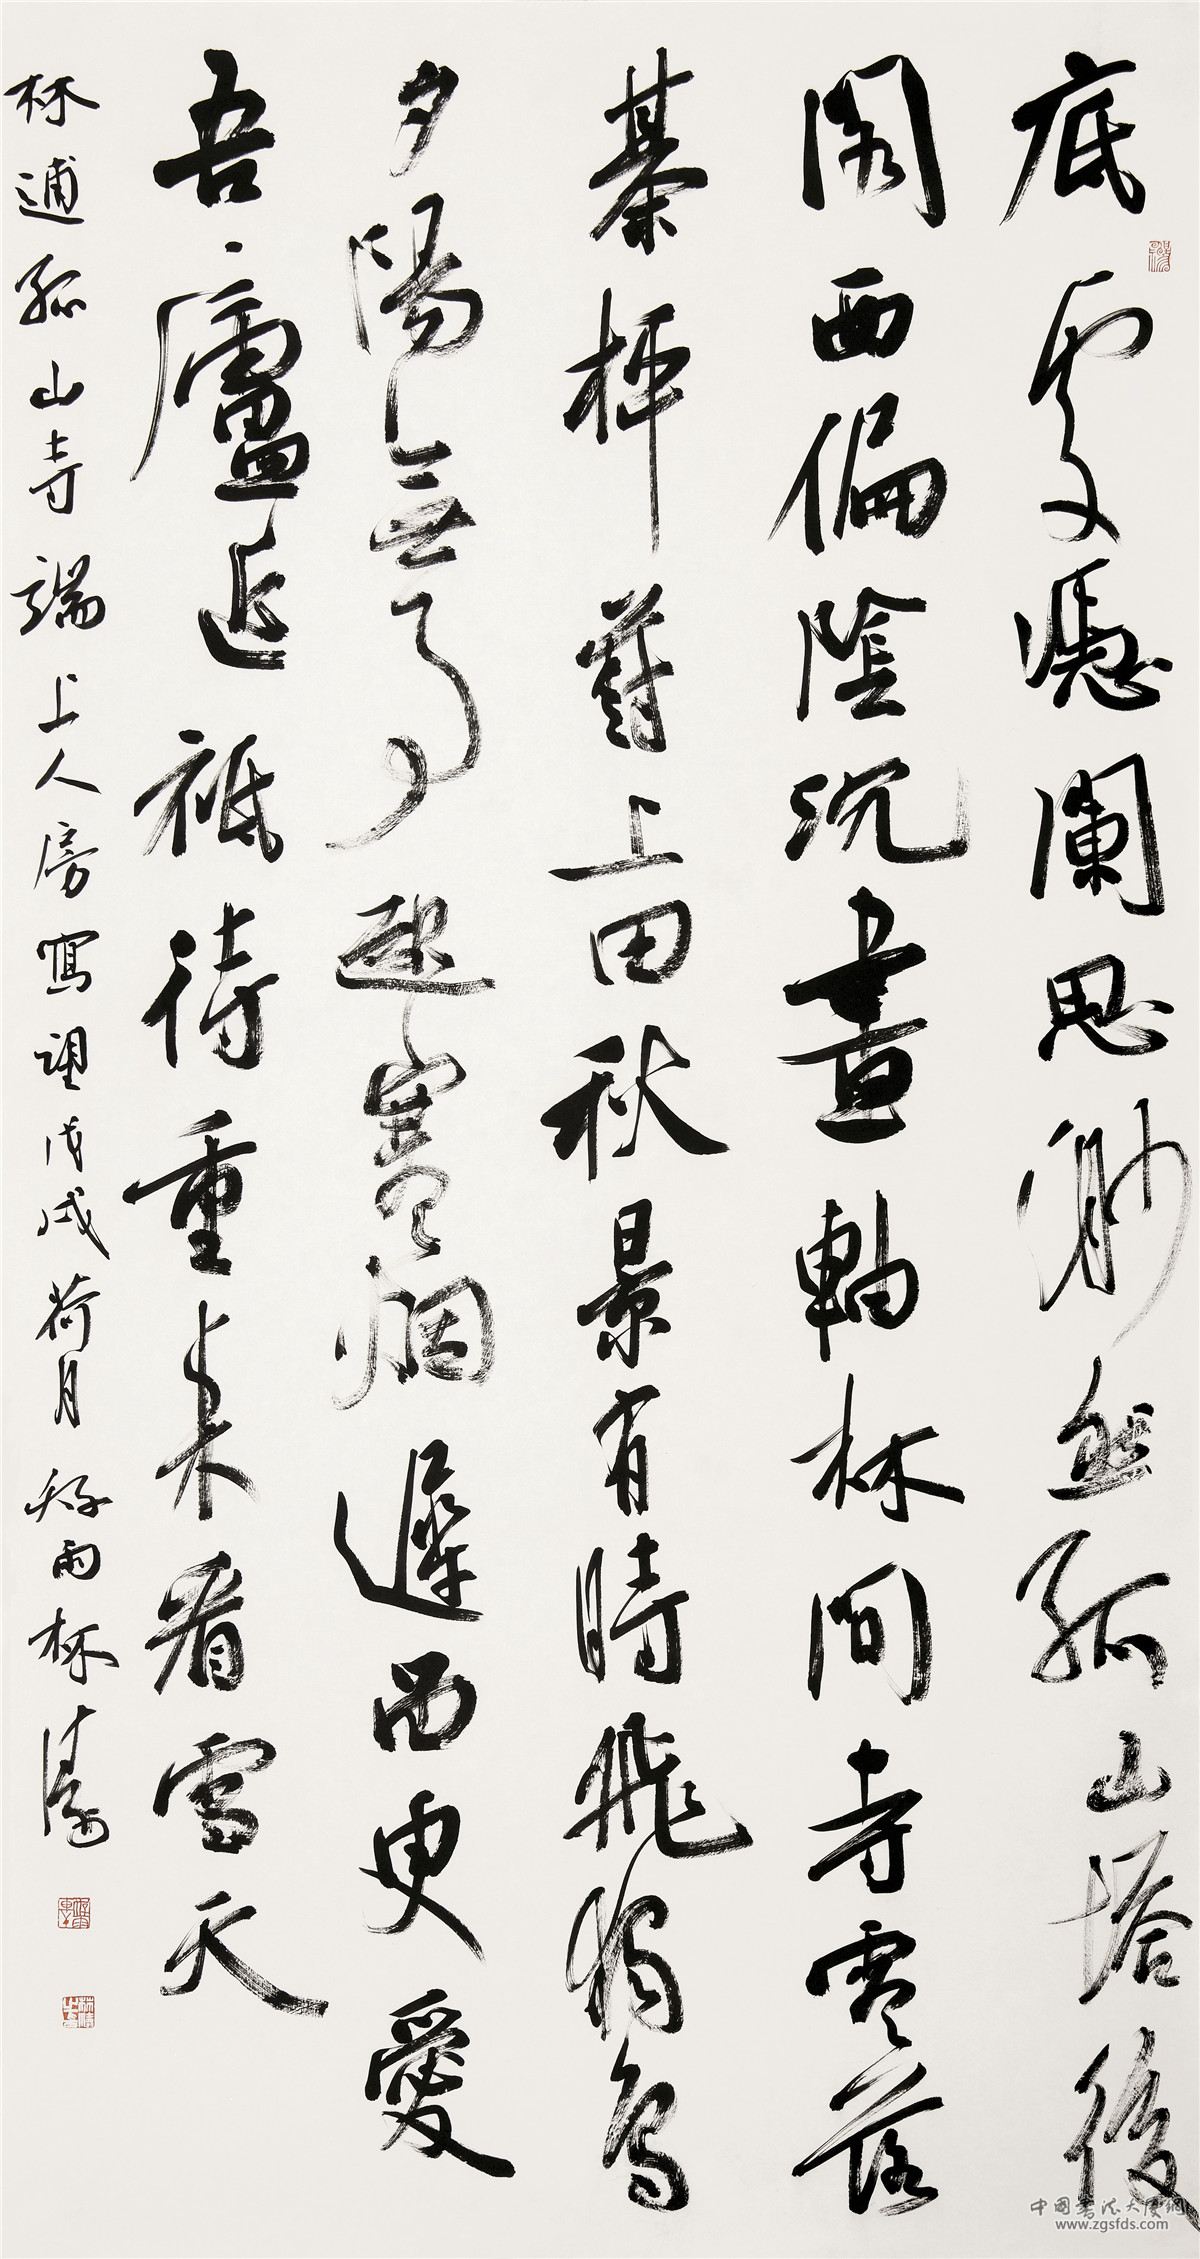 底處憑闌思渺然孤山塔後
閣西偏陰沉畫軸林間寺零落
棊枰葑上田秋景有時飛獨鳥
夕陽無事起寒烟遲留更愛
吾廬近祗待重來看雪天
林逋孤山寺端上人房寫望戊戌荷月好雨林濤
www.zgsfds.com